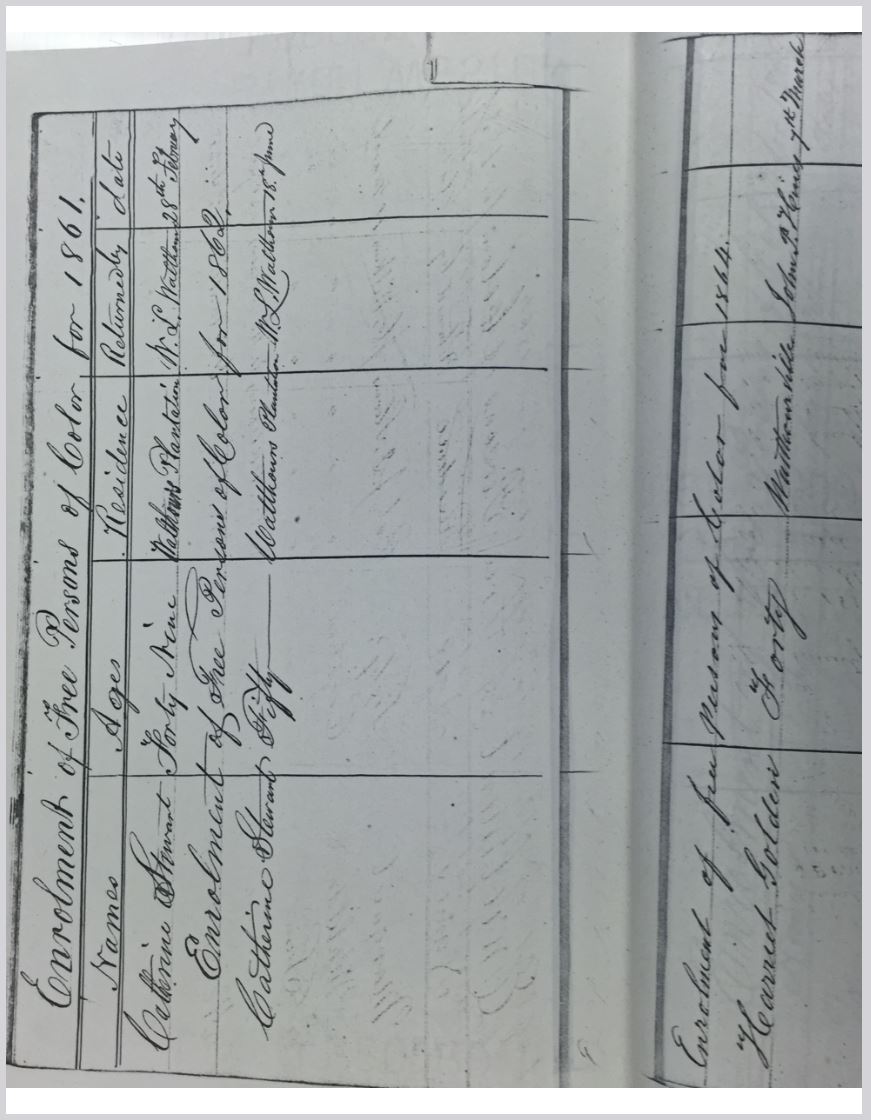 Enrolment of Free Persons of Color for 1861.
Names Ages Residence Returned by date
Catherine Stewart Forty Nine Walthours Plantation W. L. Walthour 28th February
Enrolment of Free Persons of Color for 1862.
Catherine Stewart Fifty Walthours Plantation W. L. Walthour 18th June
Enrolment of free Persons of Color for 1864.
" "
Harriet Golden Forty Walthourville John P. 7th March